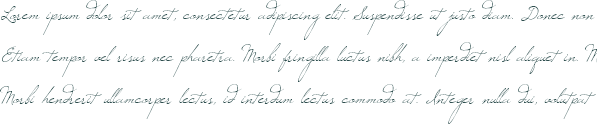 Lorem ipsum dolor sit amet, consectetur adipiscing elit. Suspendisse at justo diam. Donec non
Etiam tempor vel risus nec pharetra. Morbi fringilla luctus nibh, a imperdiet nisl aliquet in. M
Morbi hendrerit ullamcorper lectus, id interdum lectus commodo at. Integer nulla dui, volutpat